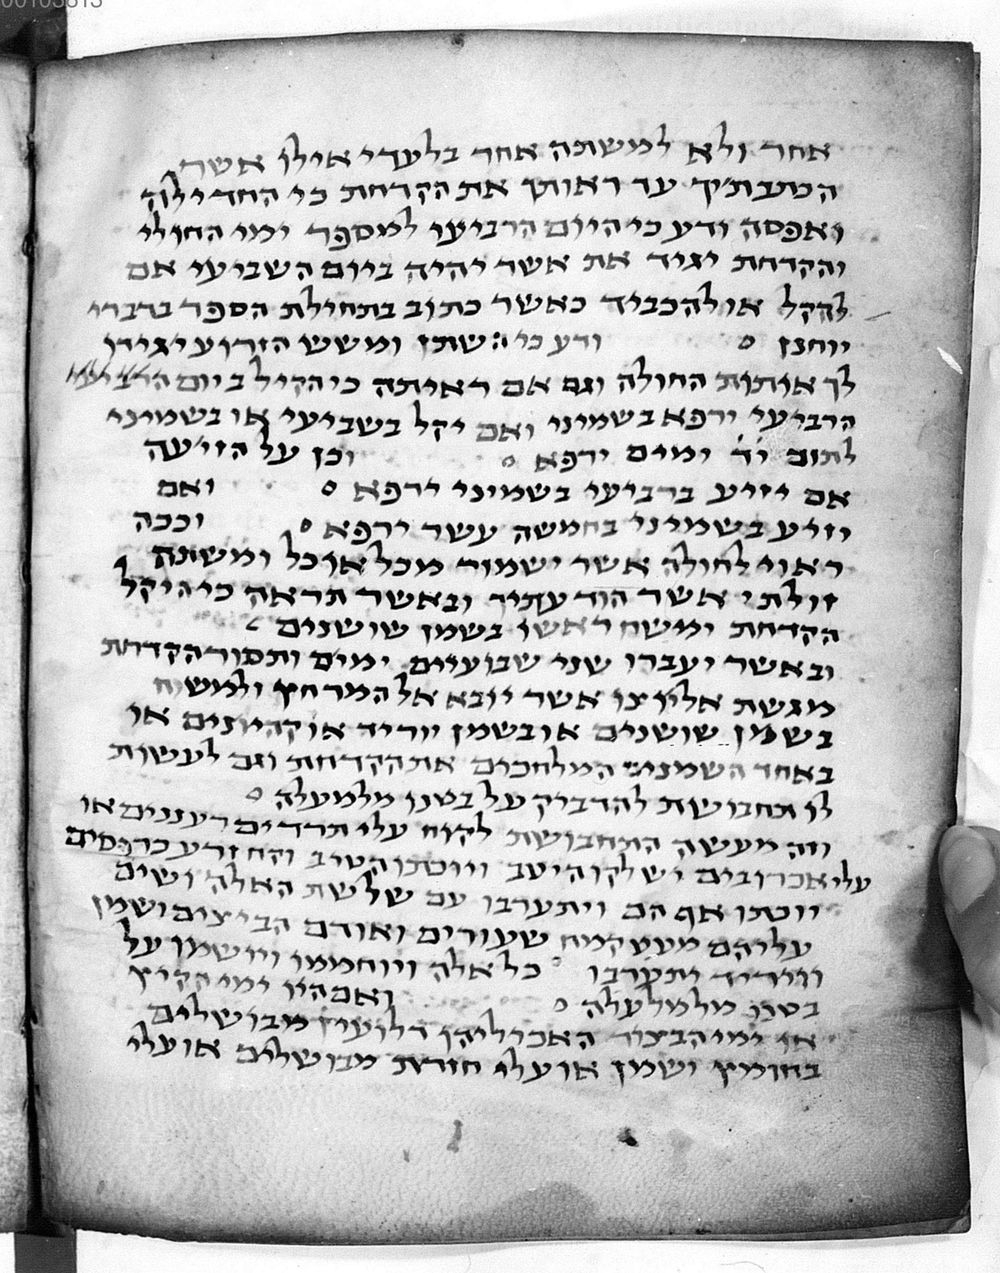 אחר ולא למשתה אחר בלעדי אילו אשר
הכתבתיך עד ראותך את הקדחת כי החדילה
ואפסה ודע כי היום הרביעי למספר ימי החולי
והקדחת יגיד את אשר יהיה ביום השביעי אם
להקל או להכביד כאשר כתוב בתחילת הספר בדברי
יוחנן ודע כי השתן ומשש הזרוע יגידו
לך אותות החולה וגם אם ראיתה כי הקיל ביום
הרביעי ירפא בשמיני ואם יקל בשביעי או בשמיני
לתום יד ימים ירפא וכן על הזיעה
אם יזיע ברביעי בשמיני ירפא ואם
יזיע בשמיני בחמשה עשר ירפא וככה
ראוי לחולה אשר ישמור מכל אוכל ומשתה
זולתי אשר הודעתיך ובאשר תראה כי היקל
הקדחת ימשח ראשו בשמן שושנים
ובאשר יעברו שני שבועיים ימים ותסור הקדחת
מגשת אליו צו אשר יובא אל המרחץ ולמשוח
בשמן שושנים או בשמן ווריד או קהיונים או
באחד השמנים המלחכים את הקדחת וגם לעשות
לו תחבושת להדביק על בטנו מלמעלה
וזה מעשה התחבושת לקוח עלי תרדים רעננים או
עלי אכרובים ישלקו היטב ויוכתו הטיב וקח זרע כרפסים
יוכתו אף הם ויתערבו עם שלשת האלה ושים
עליהם מעט קמח שעורים ואודם הביצים ושמן
ווריד יתערבו כל אלה ויוחממו ויושמו על
בטנו מלמלעלה ואם היו ימי הקיץ
או ימי הבציר האכילהו דלועין מבושלים
בחומץ ושמן או עלי חזרת מבושלים או עלי